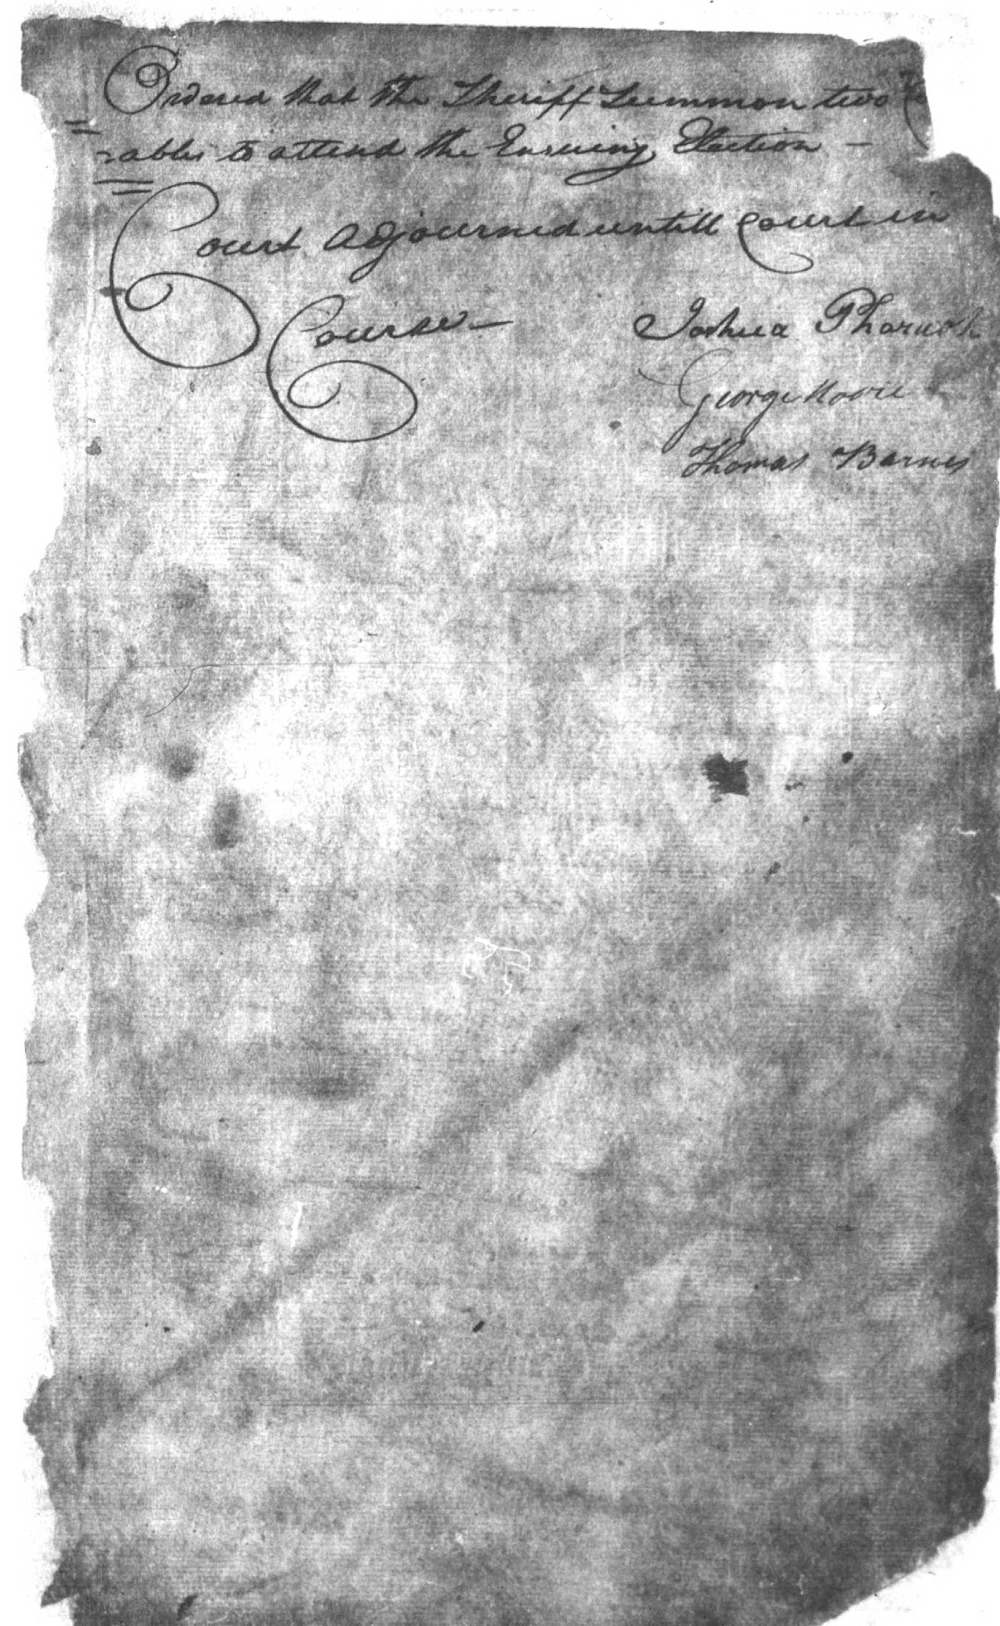 Ordered that the Sheriff Summon two
=rables to attend the Ensuing Election –
Court Adjourned untill Court in
Course –
Joshua Pharuoh
George Moore
Thomas Barnes